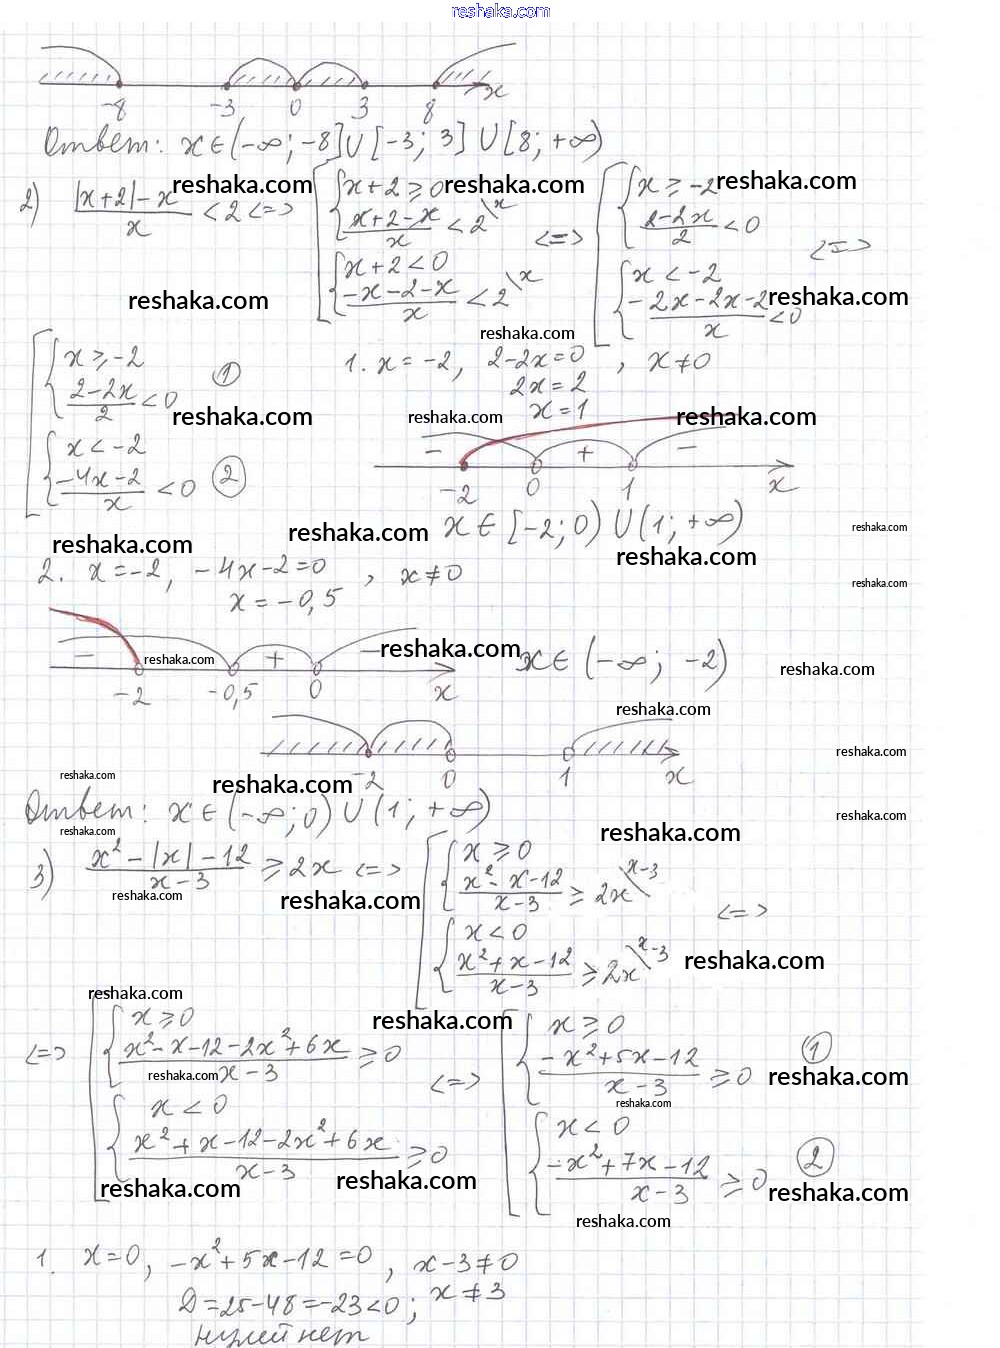 reshaka.com
-8 -3 0 3 8 x
Ответ: x∈(-∞; -8]∪[-3; 3]∪[8; +∞)
2) |x+2|-x / x < 2 <=> [ { x+2 ≥ 0 ; x+2-x / x < 2 \x ; { x+2 < 0 ; -x-2-x / x < 2 \x <=> [ { x ≥ -2 ; 2-2x / 2 < 0 ; { x < -2 ; -2x-2x-2 / x < 0 <=>
reshaka.com reshaka.com reshaka.com
reshaka.com reshaka.com
reshaka.com
[ { x ≥ -2 ; 2-2x / 2 < 0 ①
{ x < -2 ; -4x-2 / x < 0 ②
1. x = -2, 2-2x=0 , x ≠ 0
2x = 2
x = 1
reshaka.com reshaka.com reshaka.com
- + -
-2 0 1 x
x ∈ [-2; 0) ∪ (1; +∞)
reshaka.com reshaka.com reshaka.com
reshaka.com
2. x = -2, -4x-2=0 , x ≠ 0
x = -0,5
reshaka.com
- + -
reshaka.com reshaka.com
-2 -0,5 0 x
x ∈ (-∞; -2)
reshaka.com
reshaka.com
-2 0 1 x
reshaka.com
reshaka.com reshaka.com
Ответ: x ∈ (-∞; 0) ∪ (1; +∞)
reshaka.com
reshaka.com reshaka.com
3) x²-|x|-12 / x-3 ≥ 2x <=> [ { x ≥ 0 ; x²-x-12 / x-3 ≥ 2x \x-3 ; { x < 0 ; x²+x-12 / x-3 ≥ 2x \x-3 <=>
reshaka.com reshaka.com
reshaka.com
reshaka.com reshaka.com
<=> [ { x ≥ 0 ; x²-x-12-2x²+6x / x-3 ≥ 0 ; { x < 0 ; x²+x-12-2x²+6x / x-3 ≥ 0 <=> [ { x ≥ 0 ; -x²+5x-12 / x-3 ≥ 0 ① ; { x < 0 ; -x²+7x-12 / x-3 ≥ 0 ②
reshaka.com reshaka.com
reshaka.com
reshaka.com reshaka.com reshaka.com
reshaka.com
1. x=0, -x²+5x-12=0 , x-3≠0
Д=25-48=-23<0; x ≠ 3
нулей нет